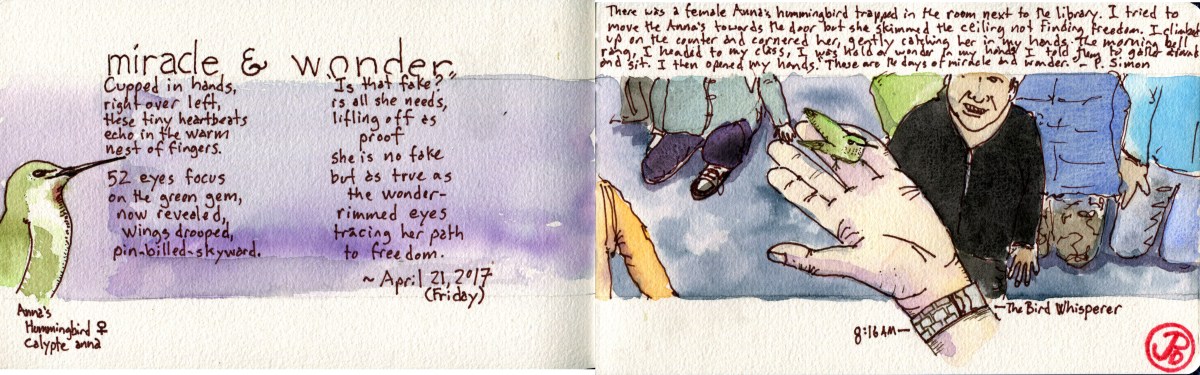 miracle & wonder
Cupped in hands,
right over left,
these tiny heartbeats
echo in the warm
nest of fingers.
52 eyes focus
on the green gem,
now revealed,
wings drooped,
pin-billed-skyward.
"Is that fake?"
is all she needs,
lifling off as
proof
she is no fake
but as true as
the wonder-
rimmed eyes
tracing her path
to freedom.
~ April 21, 2017
(Friday)
Anna's
Hummingbird ♀
Calypte anna
There was a female Anna's hummingbird trapped in the room next to the library. I tried to
move the Anna's towards the door but she skimmed the ceiling not finding freedom. I climbed
up on the counter and cornered her, gently catching her in my hands. The morning bell
rang, I headed to my class, I was holding wonder in my hands. I told them to gather around
and sit. I then opened my hands. "These are the days of miracle and wonder." ~ P. Simon
The Bird Whisperer
8:16 AM
JPD